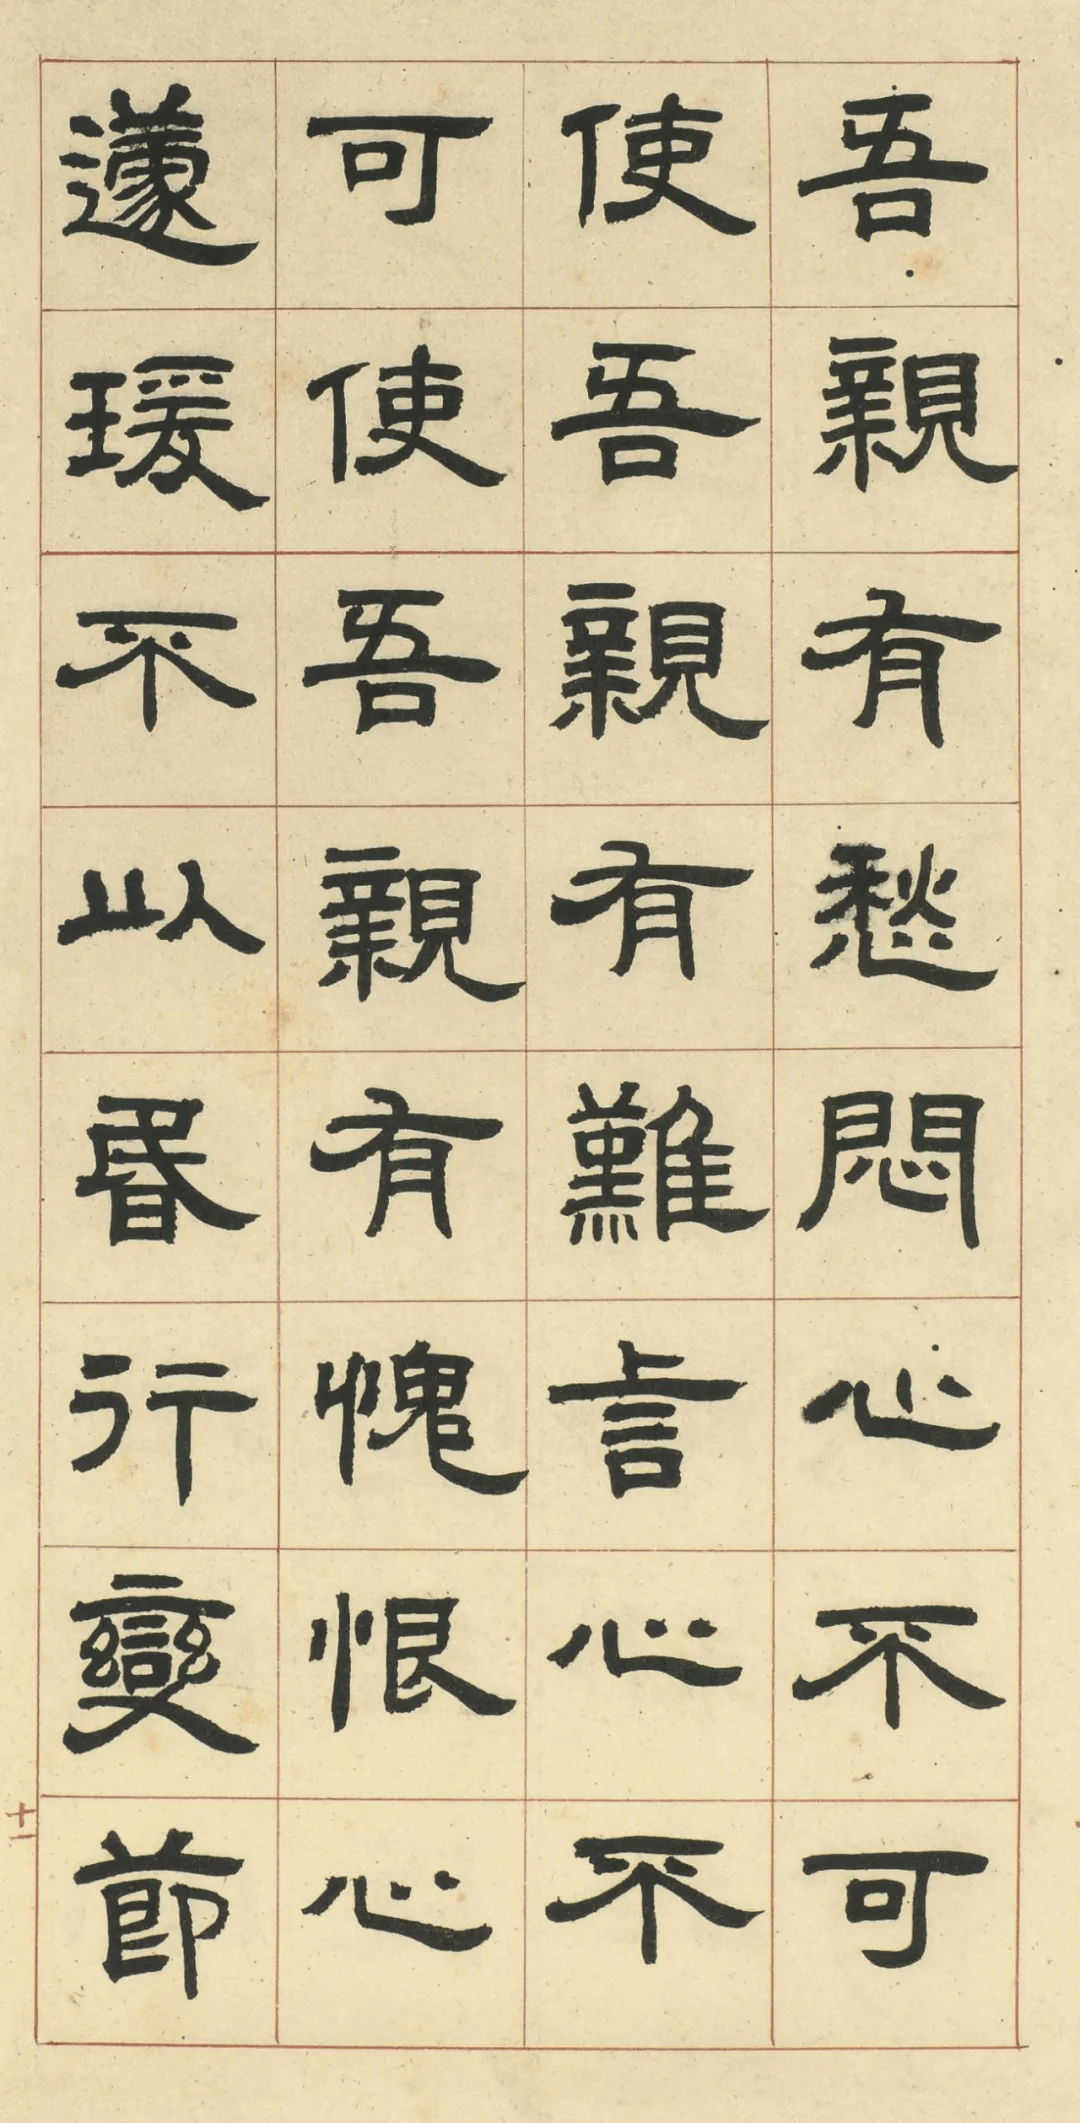 吾親有愁悶心不可
使吾親有難言心不
可使吾親有愧恨心
蘧瑗不以昬行變節
十二